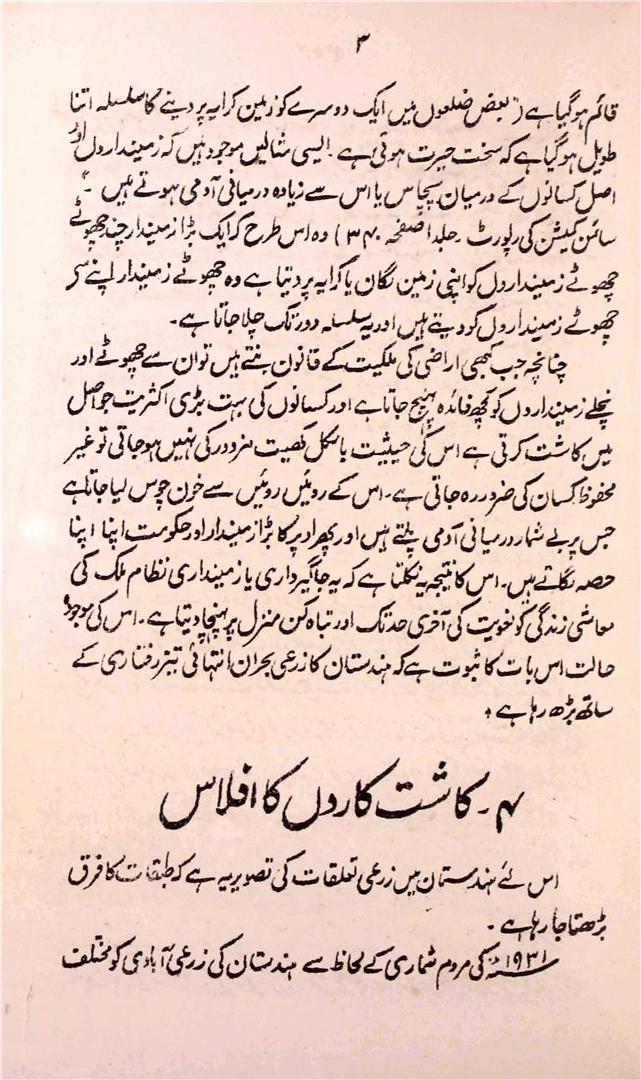 ۳
قائم ہو گیا ہے ("بعض ضلعوں میں ایک دوسرے کو زمین کرایہ پر دینے کا سلسلہ اتنا
طویل ہو گیا ہے کہ سخت حیرت ہوتی ہے۔ ایسی مثالیں موجود ہیں کہ زمینداروں اور
اصل کسانوں کے درمیان پچاس یا اس سے زیادہ درمیانی آدمی ہوتے ہیں۔"
سائمن کمیشن کی رپورٹ۔ جلد ا صفحہ ۳۴۰) وہ اس طرح کہ ایک بڑا زمیندار چند چھوٹے
چھوٹے زمینداروں کو اپنی زمین لگان یا کرایہ پر دیتا ہے وہ چھوٹے زمیندار اپنے سے
چھوٹے زمینداروں کو دیتے ہیں اور یہ سلسلہ دور تک چلا جاتا ہے۔
چنانچہ جب کبھی اراضی کی ملکیت کے قانون بنتے ہیں تو ان سے چھوٹے اور
نچلے زمینداروں کو کچھ فائدہ پہنچ جاتا ہے اور کسانوں کی بہت بڑی اکثریت جو اصل
میں کاشت کرتی ہے اس کی حیثیت بالکل کھیت مزدور کی نہیں ہو جاتی تو غیر
محفوظ کسان کی ضرور رہ جاتی ہے۔ اس کے روئیں روئیں سے خون چوس لیا جاتا ہے
جس پر بے شمار درمیانی آدمی پلتے ہیں اور پھر اوپر کا بڑا زمیندار اور حکومت اپنا اپنا
حصہ لگاتے ہیں۔ اس کا نتیجہ یہ نکلتا ہے کہ یہ جاگیرداری یا زمینداری نظام ملک کی
معاشی زندگی کو لغویت کی آخری حد تک اور تباہ کن منزل پر پہنچا دیتا ہے۔ اس کی موجودہ
حالت اس بات کا ثبوت ہے کہ ہندستان کا زرعی بحران انتہائی تیز رفتاری کے
ساتھ بڑھ رہا ہے۔
۴۔ کاشت کاروں کا افلاس
اس لئے ہندستان میں زرعی تعلقات کی تصویر یہ ہے کہ طبقات کا فرق
بڑھتا جا رہا ہے۔
۱۹۳۱ء کی مردم شماری کے لحاظ سے ہندستان کی زرعی آبادی کو مختلف